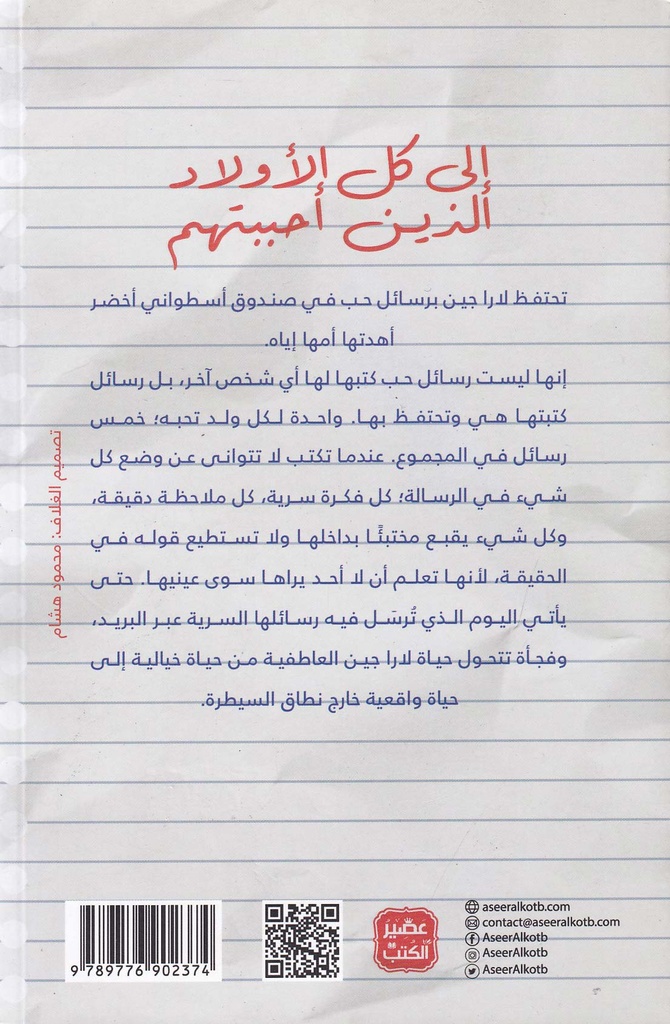 إلى كل الأولاد
الذين أحببتهم
تحتفظ لارا جين برسائل حب في صندوق أسطواني أخضر
أهدتها أمها إياه.
إنها ليست رسائل حب كتبها لها أي شخص آخر، بل رسائل
كتبتها هي وتحتفظ بها. واحدة لكل ولد تحبه؛ خمس
رسائل في المجموع. عندما تكتب لا تتوانى عن وضع كل
شيء في الرسالة؛ كل فكرة سرية، كل ملاحظة دقيقة،
وكل شيء يقبع مختبئًا بداخلها ولا تستطيع قوله في
الحقيقة، لأنها تعلم أن لا أحد يراها سوى عينيها. حتى
يأتي اليوم الذي تُرسَل فيه رسائلها السرية عبر البريد،
وفجأة تتحول حياة لارا جين العاطفية من حياة خيالية إلى
حياة واقعية خارج نطاق السيطرة.
تصميم الغلاف: محمود هشام
9 789776 902374
عصير
الكتب
aseeralkotb.com
contact@aseeralkotb.com
AseerAlkotb
AseerAlkotb
AseerAlkotb